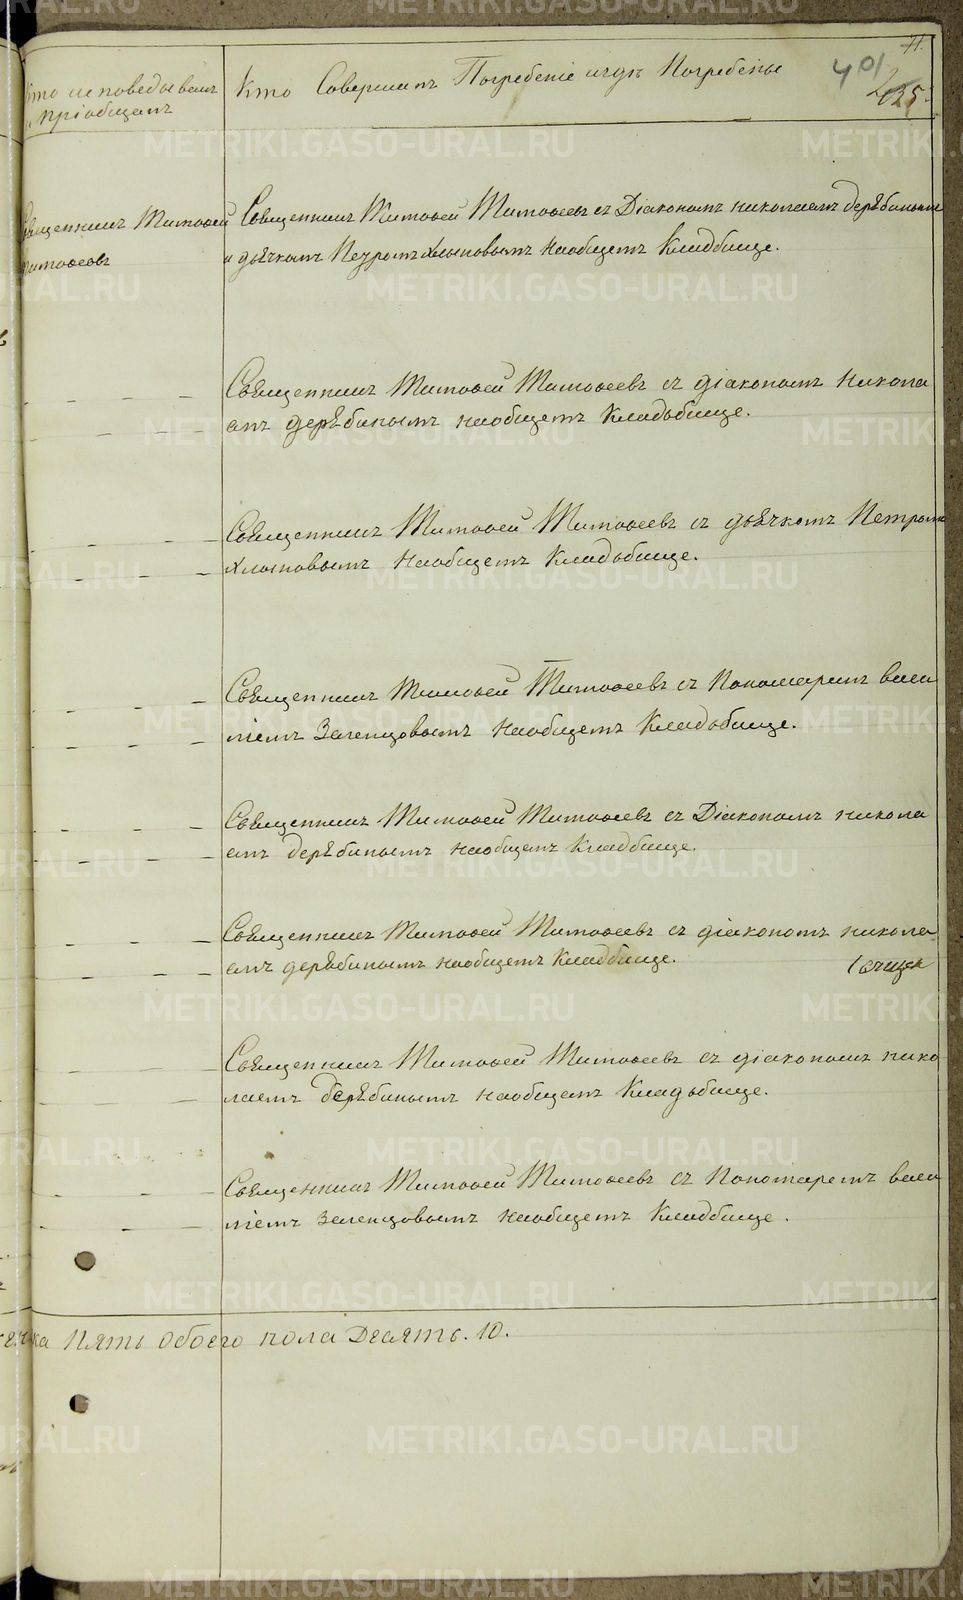 11.
401
225.
Кто исповедывалъ
и пріобщалъ
Кто Совершалъ Погребеніе игдѣ Погребены
Священникъ Тимофей
Тимофеевъ
Священникъ Тимофей Тимофеевъ съ Діакономъ николаемъ дерябинымъ
и дьячкомъ Петромъ Хлыновымъ наобщемъ Кладбище.
Священникъ Тимофей Тимофеевъ съ діакономъ Никола
емъ дерябинымъ наобщемъ Кладьбище.
Священникъ Тимофей Тимофеевъ съ дьячкомъ Петромъ
Хлыновымъ наобщемъ Кладьбище.
Священникъ Тимофей Тимофеевъ съ Пономаремъ васи
ліемъ Зеленцовымъ наобщемъ Кладьбище.
Священникъ Тимофей Тимофеевъ съ Діакономъ никола
емъ дерябинымъ наобщемъ Кладбище.
Священникъ Тимофей Тимофеевъ съ діакономъ никола
емъ дерябинымъ наобщемъ Кладбище.
Священникъ Тимофей Тимофеевъ съ діакономъ нико
лаемъ дерябинымъ наобщемъ Кладьбище.
Священникъ Тимофей Тимофеевъ съ Пономаремъ васи
ліемъ Зеленцовымъ наобщемъ Кладбище.
Пять обоего пола Десять. 10.
METRIKI.GASO-URAL.RU